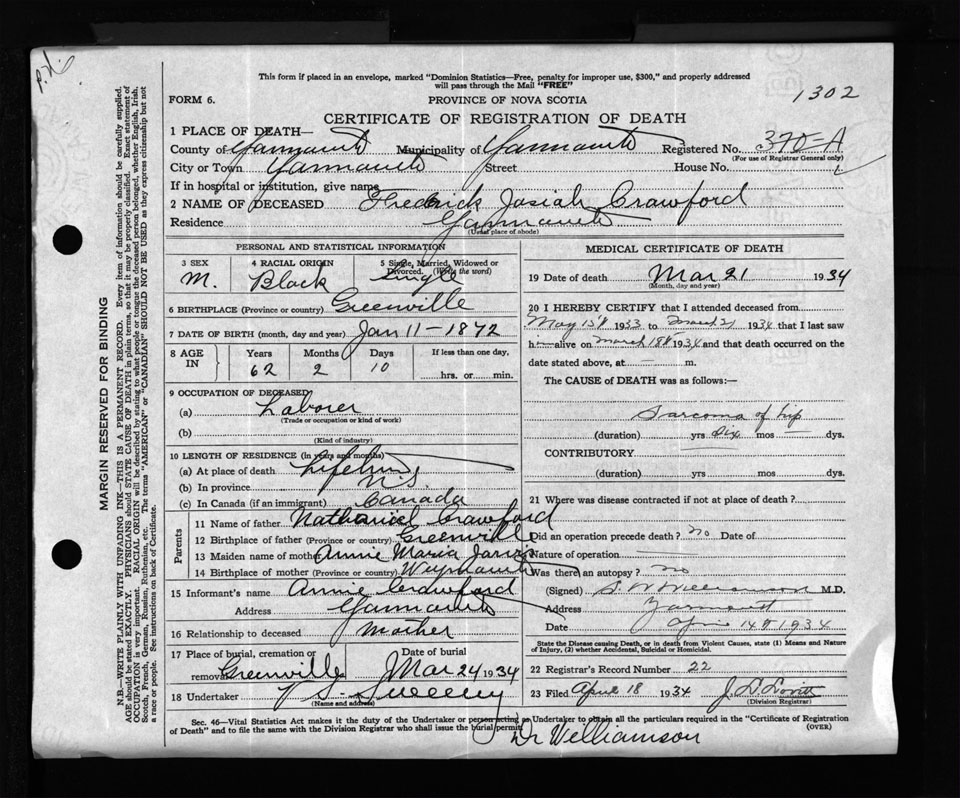 P.X.
This form if placed in an envelope, marked "Dominion Statistics—Free, penalty for improper use, $300," and properly addressed
will pass through the Mail "FREE"
1302
FORM 6.
PROVINCE OF NOVA SCOTIA
CERTIFICATE OF REGISTRATION OF DEATH
1 PLACE OF DEATH—
County of Yarmouth Municipality of Yarmouth Registered No. 370-A
(For use of Registrar General only)
City or Town Yarmouth Street House No.
If in hospital or institution, give name
2 NAME OF DECEASED Fredrick Josiah Crawford
Residence Yarmouth
(Usual place of abode)
PERSONAL AND STATISTICAL INFORMATION
3 SEX M.
4 RACIAL ORIGIN Black
5 Single, Married, Widowed or
Divorced. (Write the word) Single
6 BIRTHPLACE (Province or country) Greenville
7 DATE OF BIRTH (month, day and year) Jan 11-1872
8 AGE IN Years Months Days If less than one day,
62 2 10 hrs. or min.
9 OCCUPATION OF DECEASED
(a) Laborer
(Trade or occupation or kind of work)
(b)
(Kind of industry)
10 LENGTH OF RESIDENCE (in years and months)
(a) At place of death Lifetime
(b) In province N.S.
(c) In Canada (if an immigrant) Canada
Parents
11 Name of father Nathaniel Crawford
12 Birthplace of father (Province or country) Greenville
13 Maiden name of mother Annie Maria Jarvis
14 Birthplace of mother (Province or country) Weymouth
15 Informant's name Annie Crawford
Address Yarmouth
16 Relationship to deceased Mother
17 Place of burial, cremation or Date of burial
removal Greenville Mar 24 1934
18 Undertaker V S Sweeny
(Name and address)
MEDICAL CERTIFICATE OF DEATH
19 Date of death Mar 21 1934
(Month, day and year)
20 I HEREBY CERTIFY that I attended deceased from
May 15th 1933 to March 21 1934 that I last saw
h alive on March 18th 1934 and that death occurred on the
date stated above, at — m.
The CAUSE of DEATH was as follows:—
Sarcoma of hip
(duration) yrs six mos — dys.
CONTRIBUTORY
(duration) yrs. mos. dys.
21 Where was disease contracted if not at place of death?
Did an operation precede death? no Date of
Nature of operation
Was there an autopsy? no
(Signed) S. W Williamson M.D.
Address Yarmouth
Date April 14th 1934
State the Disease Causing Death, or in death from Violent Causes, state (1) Means and Nature
of Injury, (2) whether Accidental, Suicidal or Homicidal.
22 Registrar's Record Number 22
23 Filed April 18 1934 J. D Lovitt
(Division Registrar)
Sec. 46—Vital Statistics Act makes it the duty of the Undertaker or person acting as Undertaker to obtain all the particulars required in the "Certificate of Registration
of Death" and to file the same with the Division Registrar who shall issue the burial permit.
(OVER)
Dr Williamson
MARGIN RESERVED FOR BINDING
N.B.—WRITE PLAINLY WITH UNFADING INK—THIS IS A PERMANENT RECORD. Every item of information should be carefully supplied.
AGE should be stated EXACTLY. PHYSICIANS should STATE CAUSE OF DEATH in plain terms, so that it may be properly classified. Exact statement of
OCCUPATION is very important. RACIAL ORIGIN will be described by stating to what people or tongue the deceased person belonged, whether English, Irish,
Scotch, French, German, Russian, Ruthenian, etc. The terms "AMERICAN" or "CANADIAN" SHOULD NOT BE USED as they express citizenship but not
a race or people. See instructions on back of Certificate.